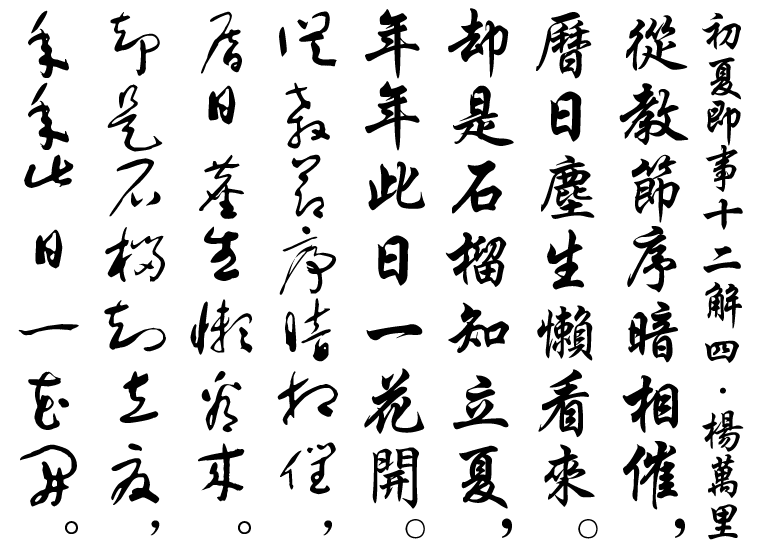 初夏即事十二解四·楊萬里
從教節序暗相催，
曆日塵生懶看來。
却是石榴知立夏，
年年此日一花開。
從教節序暗相催，
曆日塵生懶看來。
却是石榴知立夏，
年年此日一花開。